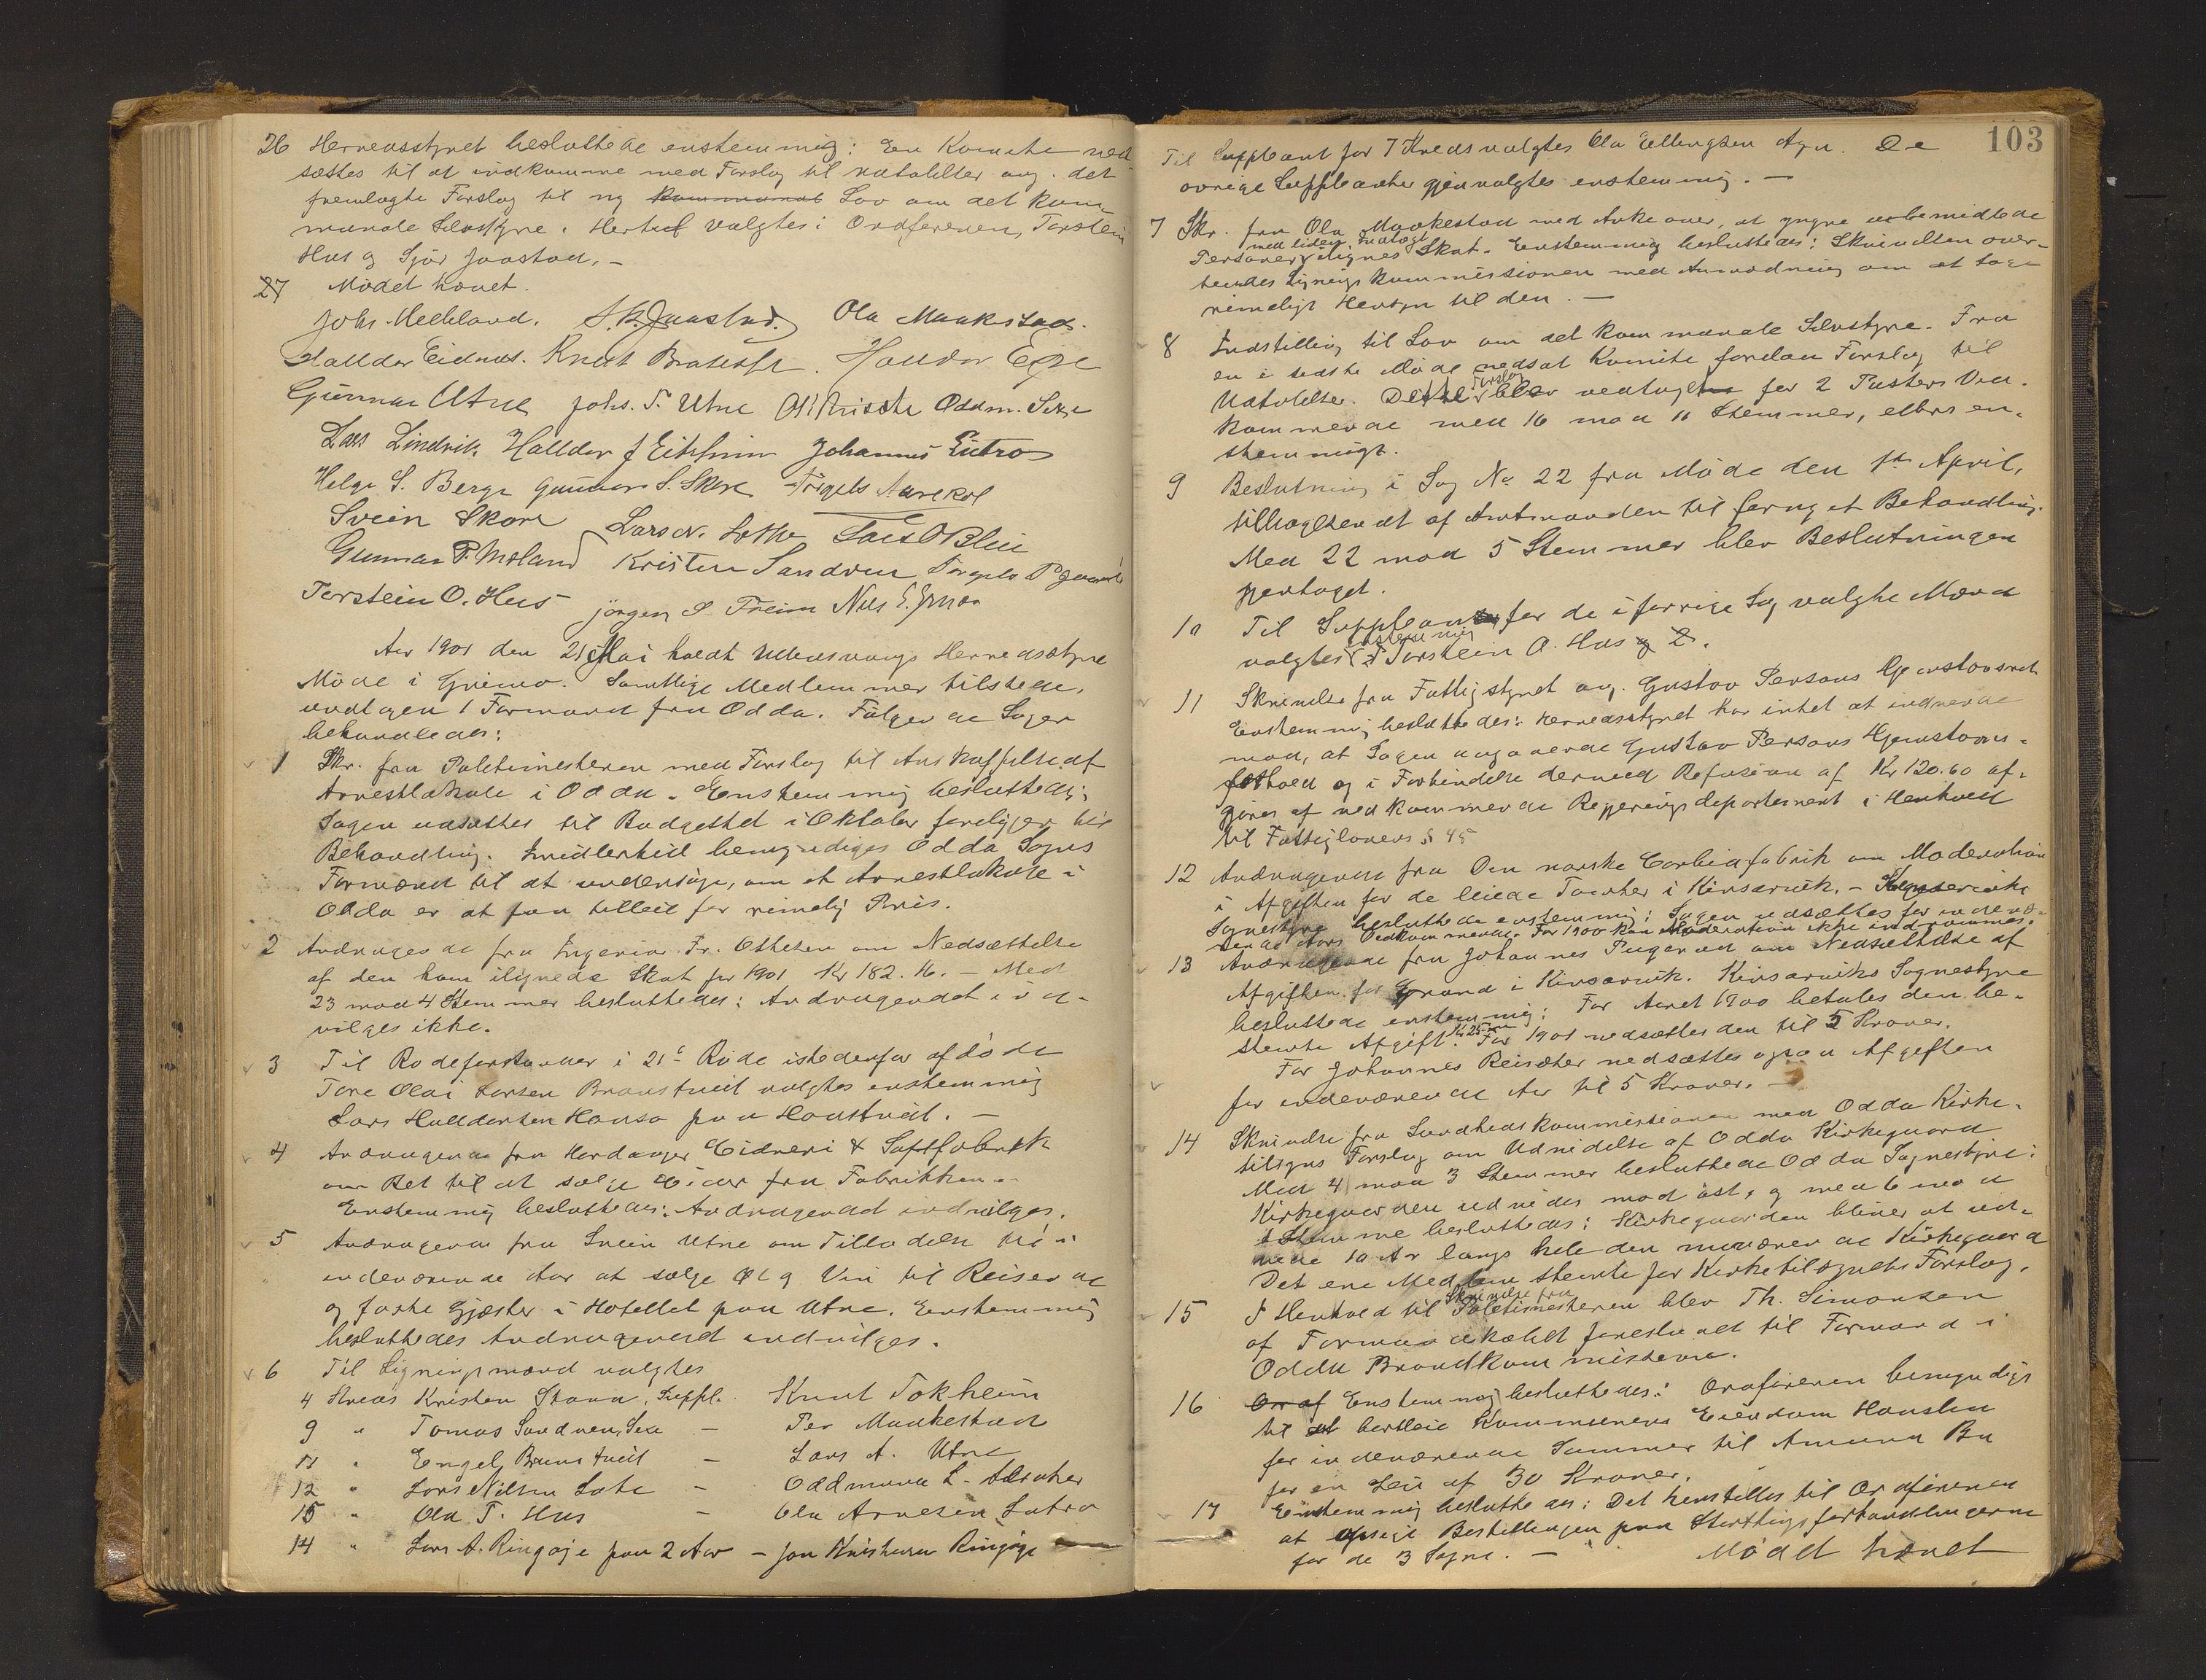 26 Herredsstyret besluttede enstemmig: En Komite ned-
sættes til at indkomme med Forslag til Udtalelser ang. det
fremlagte Forslag til ny kommunal Lov om det kom-
munale Selvstyre. Hertil valgtes: Ordføreren, Torstein
Hus og Sjur Jaastad. –
27 Mødet hævet.
Johs Meeland. S. K. Jaastad. Ola Maakestad.
Halldor Eidnes. Knut Bratetst. Halldor Eije
Gunnar Utne Johs. T. Utne Oddm. Sexe
Lars Lindvik Halldor J Eitrheim Johannes Eitro
Helge S. Berge Gunnar S. Skare Torgels Aarekol
Svein Skare Lars N. Lothe Lars O Blie
Gunnar P. Moland Kristen Sandven Torgels P Jaastad
Torstein O. Hus Jørgen S. Freim Nils E.
Aar 1901 den 21 Mai holdt Ullensvangs Herredsstyre
Møde i Grimo. Samtlige Medlemmer tilstede,
undtagen 1 Formand fra Odda. Følgende Sager
behandledes:
1 Skr. fra Politimesteren med Forslag til Anskaffelse af
Arrestlokale i Odda. Enstemmig besluttedes:
Sagen udsættes til Budgettet i Oktober foreligger til
Behandling. Imidlertid bemyndiges Odda Sogns
Formænd til at undersøge, om et Arrestlokale i
Odda er at faa tilleie for rimelig Pris.
2 Andragende fra Ingeniør Fr. Ottesen om Nedsættelse
af den ham ilignede Skat for 1901 Kr 182.16. – Med
23 mod 4 Stemmer besluttedes: Andragendet ind-
vilges ikke.
3 Til Rodeforstander i 21de Rode istedenfor afdøde
Tore Olai Larsen Braustveit valgtes enstemmig
Lars Halldorsen Hauso paa Haustveit. –
4 Andragende fra Hardanger Cideri & Saftfabrikk
om Ret til at sælge Cider fra Fabrikken.
Enstemmig besluttedes: Andragendet indvilges.
5 Andragende fra Svein Utne om Tilladelse til i
indeværende Aar at sælge Øl og Vin til Reisende
og faste Gjæster i Hotellet paa Utne. Enstemmig
besluttedes Andragendet indvilges.
6 Til Ligningsmænd valgtes
4 Kreds Kristen Stana, Suppl. Knut Tokheim
9 " Tomas Sandven, Sexe – Per Maakestad
11 " Engel Braustveit – Lars A. Utne
12 " Lars Nilsen Lote – Oddmund L. Alsaker
15 " Ola T. Hus – Ola Arnesen Lutro
14 " Lars A. Ringøje paa 2 Aar – Jon Kristensen Ringøje
103
Til Suppleant for 7 Kreds valgtes Ola Ellingsen Aga. De
øvrige Suppleanter gjenvalgtes enstemmig. –
7 Skr. fra Ola Maakestad med Anke over, at yngre ubemidlede
Personer med liden Indtægt ilignes Skat. Enstemmig besluttedes: Skrivelsen over-
sendes Ligningskommissionen med Anmodning om at tage
rimeligt Hensyn til den. –
8 Indstilling til Lov om det kommunale Selvstyre. Fra
en i sidste Møde nedsat Komite forelaa Forslag til
Udtalelser. Dette Forslag blev vedtaget for 2 Posters Ved-
kommende med 16 mod 11 Stemmer, ellers en-
stemmigt.
9 Beslutning i Sag No 22 fra Møde den 1ste April,
tilbagesendt af Amtmanden til fornyet Behandling.
Med 22 mod 5 Stemmer blev Beslutningen
gjentaget.
10 Til Suppleant for de i forrige Sag valgte Mænd
valgtes enstemmig Torstein O. Hus og 2.
11 Skrivelse fra Fattigstyret ang. Gustav Persons Hjemstavnsret
Enstemmig besluttedes: Herredsstyret har intet at indvende
mod, at Sagen angaaende Gustav Persons Hjemstavns-
forhold og i Forbindelse dermed Refusion af Kr 120.60 af-
gjøres af vedkommende Regjeringsdepartement i Henhold
til Fattiglovens § 45
12 Andragende fra Den norske Carbidfabrik om Moderation
i Afgiften for de leiede Tomter i Kinsarvik. – Kinserviks
Sognestyre besluttede enstemmig: Sagen udsættes for indevæ-
rende Aars Vedkommende. For 1900 kan Moderation ikke indrømmes.
13 Andragende fra Johannes Pugerud om Nedsættelse af
Afgiften for Grund i Kinsarvik. Kinsarviks Sognestyre
besluttede enstemmig: For Aaret 1900 betales den be-
stemte Afgift Kr 25.00 For 1901 nedsættes den til 5 Kroner.
For Johannes Reisæter nedsættes ogsaa Afgiften
for indeværende Aar til 5 Kroner. –
14 Skrivelse fra Sundhedskommissionen med Odda Kirke-
tilsyns Forslag om Udvidelse af Odda Kirkegaard
Med 4 mod 3 Stemmer besluttede Odda Sognestyre:
Kirkegaarden udvides mod øst, og med 6 mod
1 Stemme besluttedes: Kirkegaarden bliver at ud-
vide 10 Ar langs hele den nuværende Kirkegaard
Det ene Medlem stemte for Kirketilsynets Forslag.
15 I Henhold til Skrivelse fra Politimesteren blev Th. Simonsen
af Formandskabet foreslaaet til Formand i
Odda Brandkommission.
16 Enstemmig besluttedes: Ordføreren bemyndiges
til at bortleie Kommunens Eiendom Hauslen
for indeværende Sommer til Amund Bu
for en Leie af 30 Kroner.
17 Enstemmig besluttedes: Det henstilles til Ordføreren
at opsige Bestillingen paa Storthingsforhandlingerne
for de 3 Sogne. – Mødet hævet